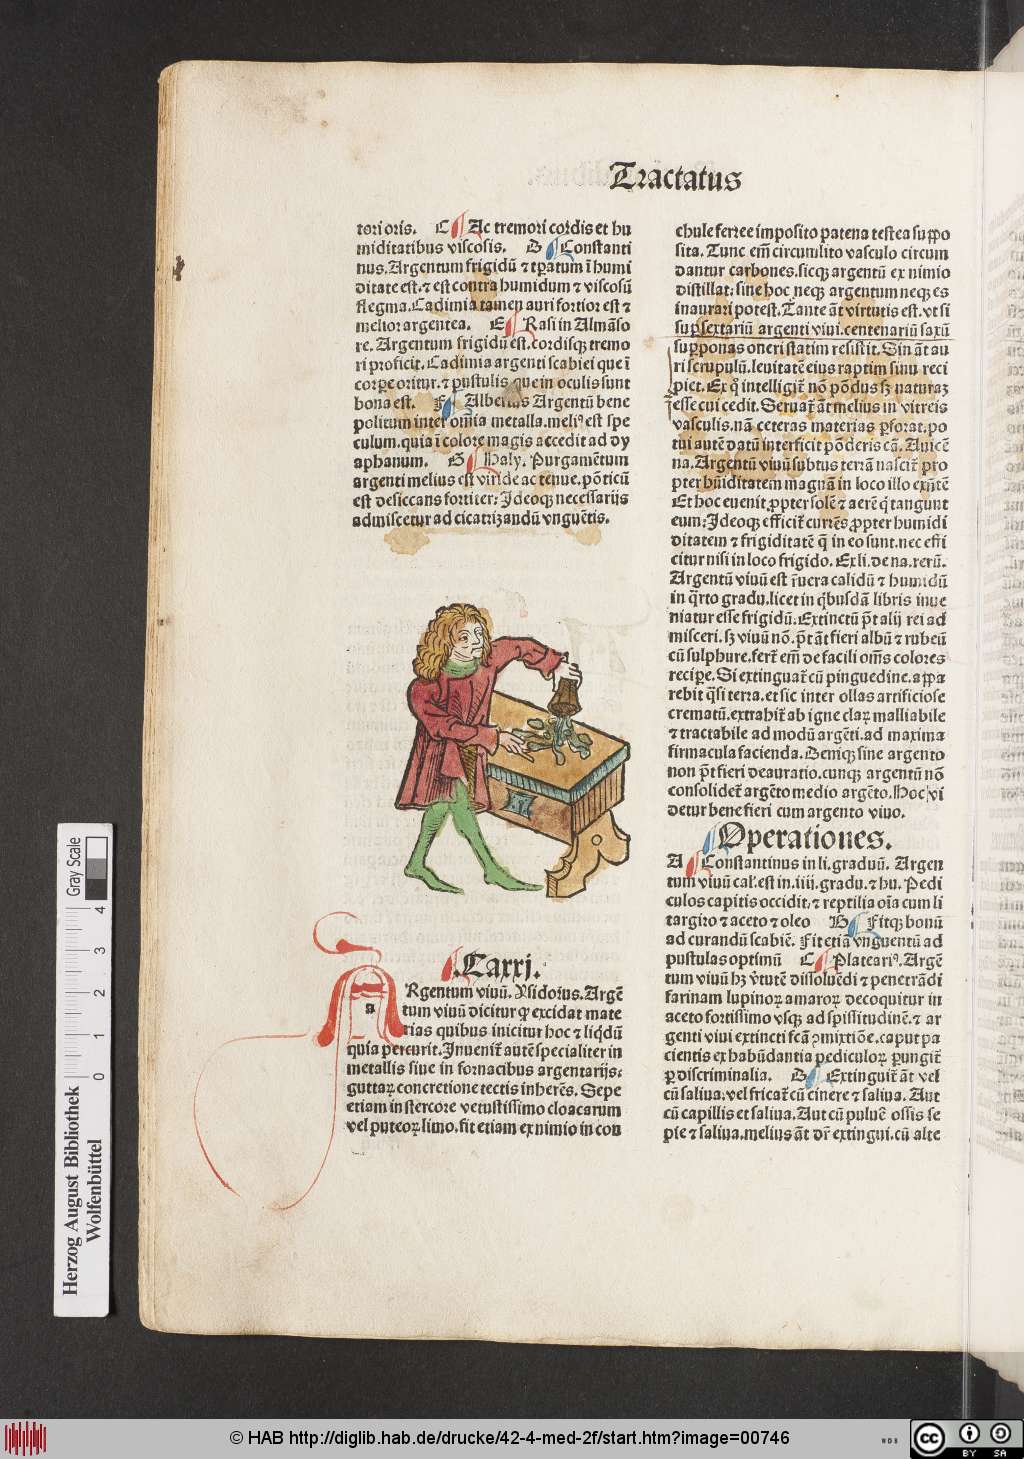 Tractatus
tori oris. C Ac tremori cordis et hu
miditatibus viscosis. D Constanti
nus. Argentum frigidū ⁊ tꝑatum ī humi
ditate est. ⁊ est contra humidum ⁊ viscosū
flegma. Cadimia tamen auri fortior est ⁊
melior argentea. E Rasi in Almāso
re. Argentum frigidū est. cordisqꝫ tremo
ri proficit. Cadimia argenti scabiei que ī
corꝑe oritur. ⁊ pustulis que in oculis sunt
bona est. F Albertus Argentū bene
politum inter om̄ia metalla. meliꝰ est spe
culum. quia ī colore magis accedit ad dy
aphanum. G Haly. Purgamētum
argenti melius est viride ac tenue. pōticū
est desiccans fortiter: Ideoqꝫ necessarijs
admiscetur ad cicatrizandū vnguētis.
.Ca.xxj.
a
ARgentum viuū. Ysidorus. Argē
tum viuū dicitur ꝙ excidat mate
rias quibus inicitur hoc ⁊ liq̄dū
quia percurit. Inuenit̄ autē specialiter in
metallis siue in fornacibus argentarijs:
guttaꝝ concretione tectis inherēs. Sepe
etiam in stercore vetustissimo cloacarum
vel puteoꝝ limo. fit etiam ex nimio in con
chule ferree imposito patena testea suꝓpo
sita. Tunc em̄ circumlito vasculo circum
dantur carbones. sicqꝫ argentū ex nimio
distillat: sine hoc neqꝫ argentum neqꝫ es
inaurari potest. Tante āt virtutis est. vt si
suꝑ sextariū argenti viui. centenariū saxū
suꝑponas oneri statim resistit. Sin āt au
ri scrupulū. leuitatē eius raptim sinu reci
piet. Ex q̊ intelligit̄ nō pōdus sꝫ naturaꝫ
esse cui cedit. Seruat̄ āt melius in vitreis
vasculis. nā ceteras materias ꝑforat. po
tui autē datū interficit pōderis cā. Auicē
na. Argentū viuū subtus terrā nascit̄ pro
pter hūiditatem magnā in loco illo exn̄tē
Et hoc euenit ꝓpter solē ⁊ aerē q̇ tangunt
eum: Ideoqꝫ efficit̄ currēs ꝓpter humidi
ditatem ⁊ frigiditatē q̄ in eo sunt. nec effi
citur nisi in loco frigido. Ex li. de na. rerū.
Argentū viuū est r̄uera calidū ⁊ humidū
in q̄rto gradu. licet in q̇busdā libris inue
niatur esse frigidū: Extinctū p̄t alij rei ad
misceri. sꝫ viuū nō. p̄t āt fieri albū ⁊ rubeū
cū sulphure. fert̄ em̄ de facili om̄s colores
reciꝑe. Si extinguat̄ cū pinguedine. aꝑpa
rebit q̄si terra. et sic inter ollas artificiose
crematū. extrahit̄ ab igne claꝝ malliabile
⁊ tractabile ad modū argēti. ad maxima
firmacula facienda. Deniqꝫ sine argento
non p̄t fieri deauratio. cunqꝫ argentū nō
consolidet̄ argēto medio argēto. Hoc vi
detur bene fieri cum argento viuo.
Operationes.
A Constantinus in li. graduū. Argen
tum viuū cal. est in .iiij. gradu. ⁊ hu. Pedi
culos capitis occidit. ⁊ reptilia oīa cum li
targiro ⁊ aceto ⁊ oleo B Fitqꝫ bonū
ad curandū scabiē. Fit etiā vnguentū ad
pustulas optimū C Plateariꝰ. Argē
tum viuū hꝫ v̄tutē dissoluēdi ⁊ penetrādi
farinam lupinoꝝ amaroꝝ decoquitur in
aceto fortissimo vsqꝫ ad spissitudinē. ⁊ ar
genti viui extincti fcā ꝯmixtiōe. caput pa
cientis ex habūdantia pediculoꝝ ꝑungit̄
ꝑ discriminalia. D Extinguit̄ āt vel
cū saliua: vel fricat̄ cū cinere ⁊ saliua. Aut
cū capillis et saliua. Aut cū puluē ossis se
pie ⁊ saliua. melius āt dr̄ extingui. cū alte
Herzog August Bibliothek
Wolfenbüttel
0 1 2 3 4
Gray Scale
© HAB http://diglib.hab.de/drucke/42-4-med-2f/start.htm?image=00746
WDB
cc
BY SA